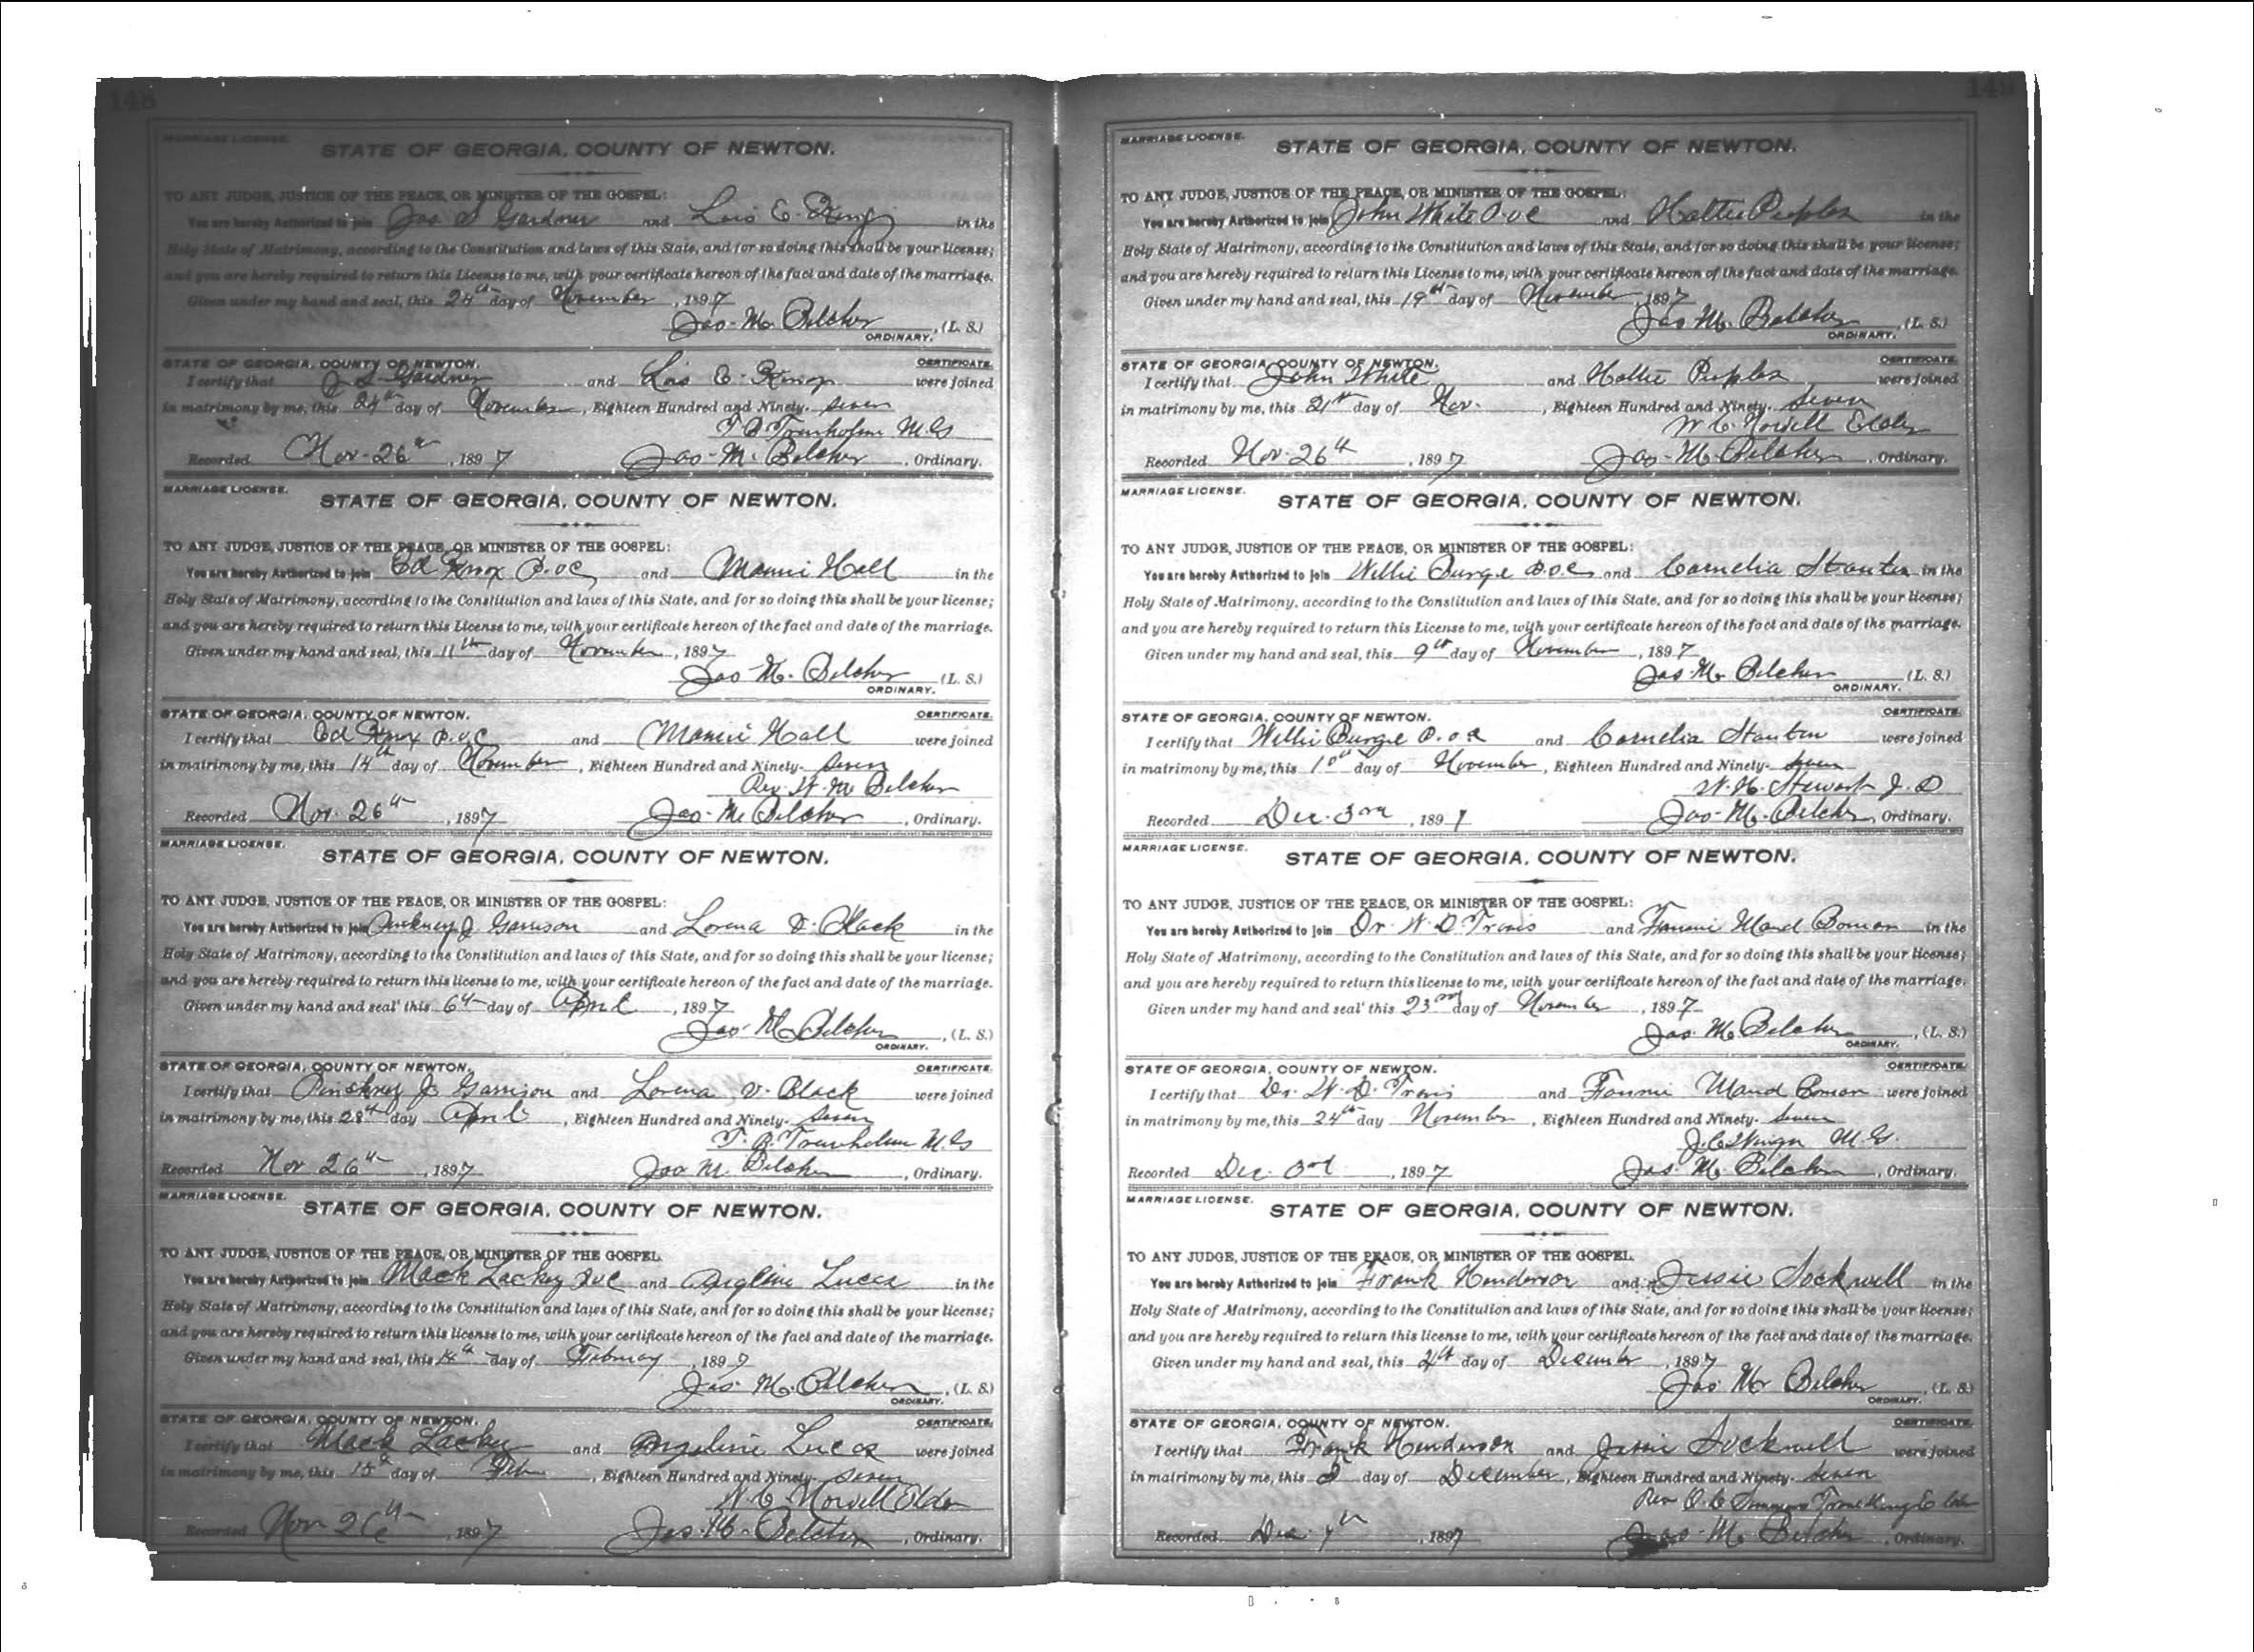 148
MARRIAGE LICENSE.
STATE OF GEORGIA, COUNTY OF NEWTON.
TO ANY JUDGE, JUSTICE OF THE PEACE, OR MINISTER OF THE GOSPEL:
You are hereby Authorized to join Jas S Gardner and Lois E. King in the
Holy State of Matrimony, according to the Constitution and laws of this State, and for so doing this shall be your license;
and you are hereby required to return this License to me, with your certificate hereon of the fact and date of the marriage.
Given under my hand and seal, this 24th day of November, 1897
Jas. M. Belcher, (L. S.)
ORDINARY.
STATE OF GEORGIA, COUNTY OF NEWTON. CERTIFICATE.
I certify that J S Gardner and Lois E. King were joined
in matrimony by me, this 24th day of November, Eighteen Hundred and Ninety-seven
T B Trenholm M.G
Recorded Nov-26th, 1897 Jas-M. Belcher, Ordinary.
MARRIAGE LICENSE.
STATE OF GEORGIA, COUNTY OF NEWTON.
TO ANY JUDGE, JUSTICE OF THE PEACE, OR MINISTER OF THE GOSPEL:
You are hereby Authorized to join Ed Knox P.oC and Mamie Hall in the
Holy State of Matrimony, according to the Constitution and laws of this State, and for so doing this shall be your license;
and you are hereby required to return this License to me, with your certificate hereon of the fact and date of the marriage.
Given under my hand and seal, this 11th day of November, 1897
Jas M. Belcher (L. S.)
ORDINARY.
STATE OF GEORGIA, COUNTY OF NEWTON. CERTIFICATE.
I certify that Ed Knox P.oC and Mamie Hall were joined
in matrimony by me, this 14th day of November, Eighteen Hundred and Ninety-seven
Rev. W. M Belcher
Recorded Nov. 26th, 1897 Jas. M. Belcher, Ordinary.
MARRIAGE LICENSE.
STATE OF GEORGIA, COUNTY OF NEWTON.
TO ANY JUDGE, JUSTICE OF THE PEACE, OR MINISTER OF THE GOSPEL:
You are hereby Authorized to join Pinkney J Garrison and Lorena V. Black in the
Holy State of Matrimony, according to the Constitution and laws of this State, and for so doing this shall be your license;
and you are hereby required to return this license to me, with your certificate hereon of the fact and date of the marriage.
Given under my hand and seal' this 6th day of April, 1897
Jas. M. Belcher, (L. S.)
ORDINARY.
STATE OF GEORGIA, COUNTY OF NEWTON. CERTIFICATE.
I certify that Pinckney J. Garrison and Lorena V. Black were joined
in matrimony by me, this 28th day April, Eighteen Hundred and Ninety-seven
T. B. Trenholm M.G
Recorded Nov 26th, 1897 Jas M. Belcher, Ordinary.
MARRIAGE LICENSE.
STATE OF GEORGIA, COUNTY OF NEWTON.
TO ANY JUDGE, JUSTICE OF THE PEACE, OR MINISTER OF THE GOSPEL
You are hereby Authorized to join Mack Lackey and Angeline Lucas in the
Holy State of Matrimony, according to the Constitution and laws of this State, and for so doing this shall be your license;
and you are hereby required to return this license to me, with your certificate hereon of the fact and date of the marriage.
Given under my hand and seal, this day of February, 1897
Jas. M. Belcher, (L. S.)
ORDINARY.
STATE OF GEORGIA, COUNTY OF NEWTON. CERTIFICATE.
I certify that Mack Lackey and Angeline Lucas were joined
in matrimony by me, this 15th day of Feb, Eighteen Hundred and Ninety-seven
W. C. Norvell Elder
Recorded Nov 26th, 1897 Jas. M. Belcher, Ordinary.
149
MARRIAGE LICENSE.
STATE OF GEORGIA, COUNTY OF NEWTON.
TO ANY JUDGE, JUSTICE OF THE PEACE, OR MINISTER OF THE GOSPEL:
You are hereby Authorized to join John White P.oC and Hattie Peeples in the
Holy State of Matrimony, according to the Constitution and laws of this State, and for so doing this shall be your license;
and you are hereby required to return this License to me, with your certificate hereon of the fact and date of the marriage.
Given under my hand and seal, this 19th day of November, 1897
Jas M. Belcher, (L. S.)
ORDINARY.
STATE OF GEORGIA, COUNTY OF NEWTON. CERTIFICATE.
I certify that John White and Hattie Peeples were joined
in matrimony by me, this 21st day of Nov., Eighteen Hundred and Ninety-seven
W. C. Norvell Elder
Recorded Nov. 26th, 1897 Jas-M. Belcher, Ordinary.
MARRIAGE LICENSE.
STATE OF GEORGIA, COUNTY OF NEWTON.
TO ANY JUDGE, JUSTICE OF THE PEACE, OR MINISTER OF THE GOSPEL:
You are hereby Authorized to join Willie Burge P.o.C and Cornelia Stanton in the
Holy State of Matrimony, according to the Constitution and laws of this State, and for so doing this shall be your license;
and you are hereby required to return this License to me, with your certificate hereon of the fact and date of the marriage.
Given under my hand and seal, this 9th day of November, 1897
Jas. M. Belcher (L. S.)
ORDINARY.
STATE OF GEORGIA, COUNTY OF NEWTON. CERTIFICATE.
I certify that Willie Burge P.o.C and Cornelia Stanton were joined
in matrimony by me, this 10th day of November, Eighteen Hundred and Ninety-seven
W. H. Stewart J. P
Recorded Dec. 3rd, 1897 Jas-M. Belcher, Ordinary.
MARRIAGE LICENSE.
STATE OF GEORGIA, COUNTY OF NEWTON.
TO ANY JUDGE, JUSTICE OF THE PEACE, OR MINISTER OF THE GOSPEL:
You are hereby Authorized to join Dr. W. D. Travis and Fannie Maud Boman in the
Holy State of Matrimony, according to the Constitution and laws of this State, and for so doing this shall be your license;
and you are hereby required to return this license to me, with your certificate hereon of the fact and date of the marriage.
Given under my hand and seal' this 23rd day of November, 1897
Jas. M. Belcher, (L. S.)
ORDINARY.
STATE OF GEORGIA, COUNTY OF NEWTON. CERTIFICATE.
I certify that Dr. W. D. Travis and Fannie Maud Boman were joined
in matrimony by me, this 24th day November, Eighteen Hundred and Ninety-seven
M.G.
Recorded Dec. 3rd, 1897 Jas. M. Belcher, Ordinary.
MARRIAGE LICENSE.
STATE OF GEORGIA, COUNTY OF NEWTON.
TO ANY JUDGE, JUSTICE OF THE PEACE, OR MINISTER OF THE GOSPEL.
You are hereby Authorized to join Frank Henderson and Jessie Sockwell in the
Holy State of Matrimony, according to the Constitution and laws of this State, and for so doing this shall be your license;
and you are hereby required to return this license to me, with your certificate hereon of the fact and date of the marriage.
Given under my hand and seal, this day of December, 1897
Jas. M. Belcher, (L. S.)
ORDINARY.
STATE OF GEORGIA, COUNTY OF NEWTON. CERTIFICATE.
I certify that Frank Henderson and Jessie Sockwell were joined
in matrimony by me, this day of December, Eighteen Hundred and Ninety-seven
Rev
Recorded Dec. 7th, 1897 Jas-M. Belcher, Ordinary.